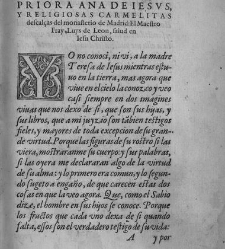 PRIORA ANA DE IESVS,
Y RELIGIOSAS CARMELITAS
descalças del monasterio de Madrid: El Maestro
Fray Luys de Leon, salud en
Iesu Christo.
YO no conoci, ni vi, a la madre
Teresa de Iesus mientras estu-
uo en la tierra, mas agora que
viue en el cielo la conozco y veo
casi siempre en dos imagines
viuas que nos dexo de si, que son sus hijas, y
sus libros, que a mi juyzio son tābien testigos
fieles, y mayores de toda excepcion de su gran-
de virtud. Porque las figuras de su rostro si las
viera, mostraranme su cuerpo: y sus palabras,
si las oyera me declararan algo de la virtud
de su alma: y lo primero era comun, y lo segun-
do sugeto a engaño, de que carecen estas dos
cosas en que la veo agora. Que, como el Sabio
dize, el hombre en sus hijos se conoce. Porque
los fructos que cada vno dexa de si quando
falta, essos son el verdadero testigo de su vida:
A y por